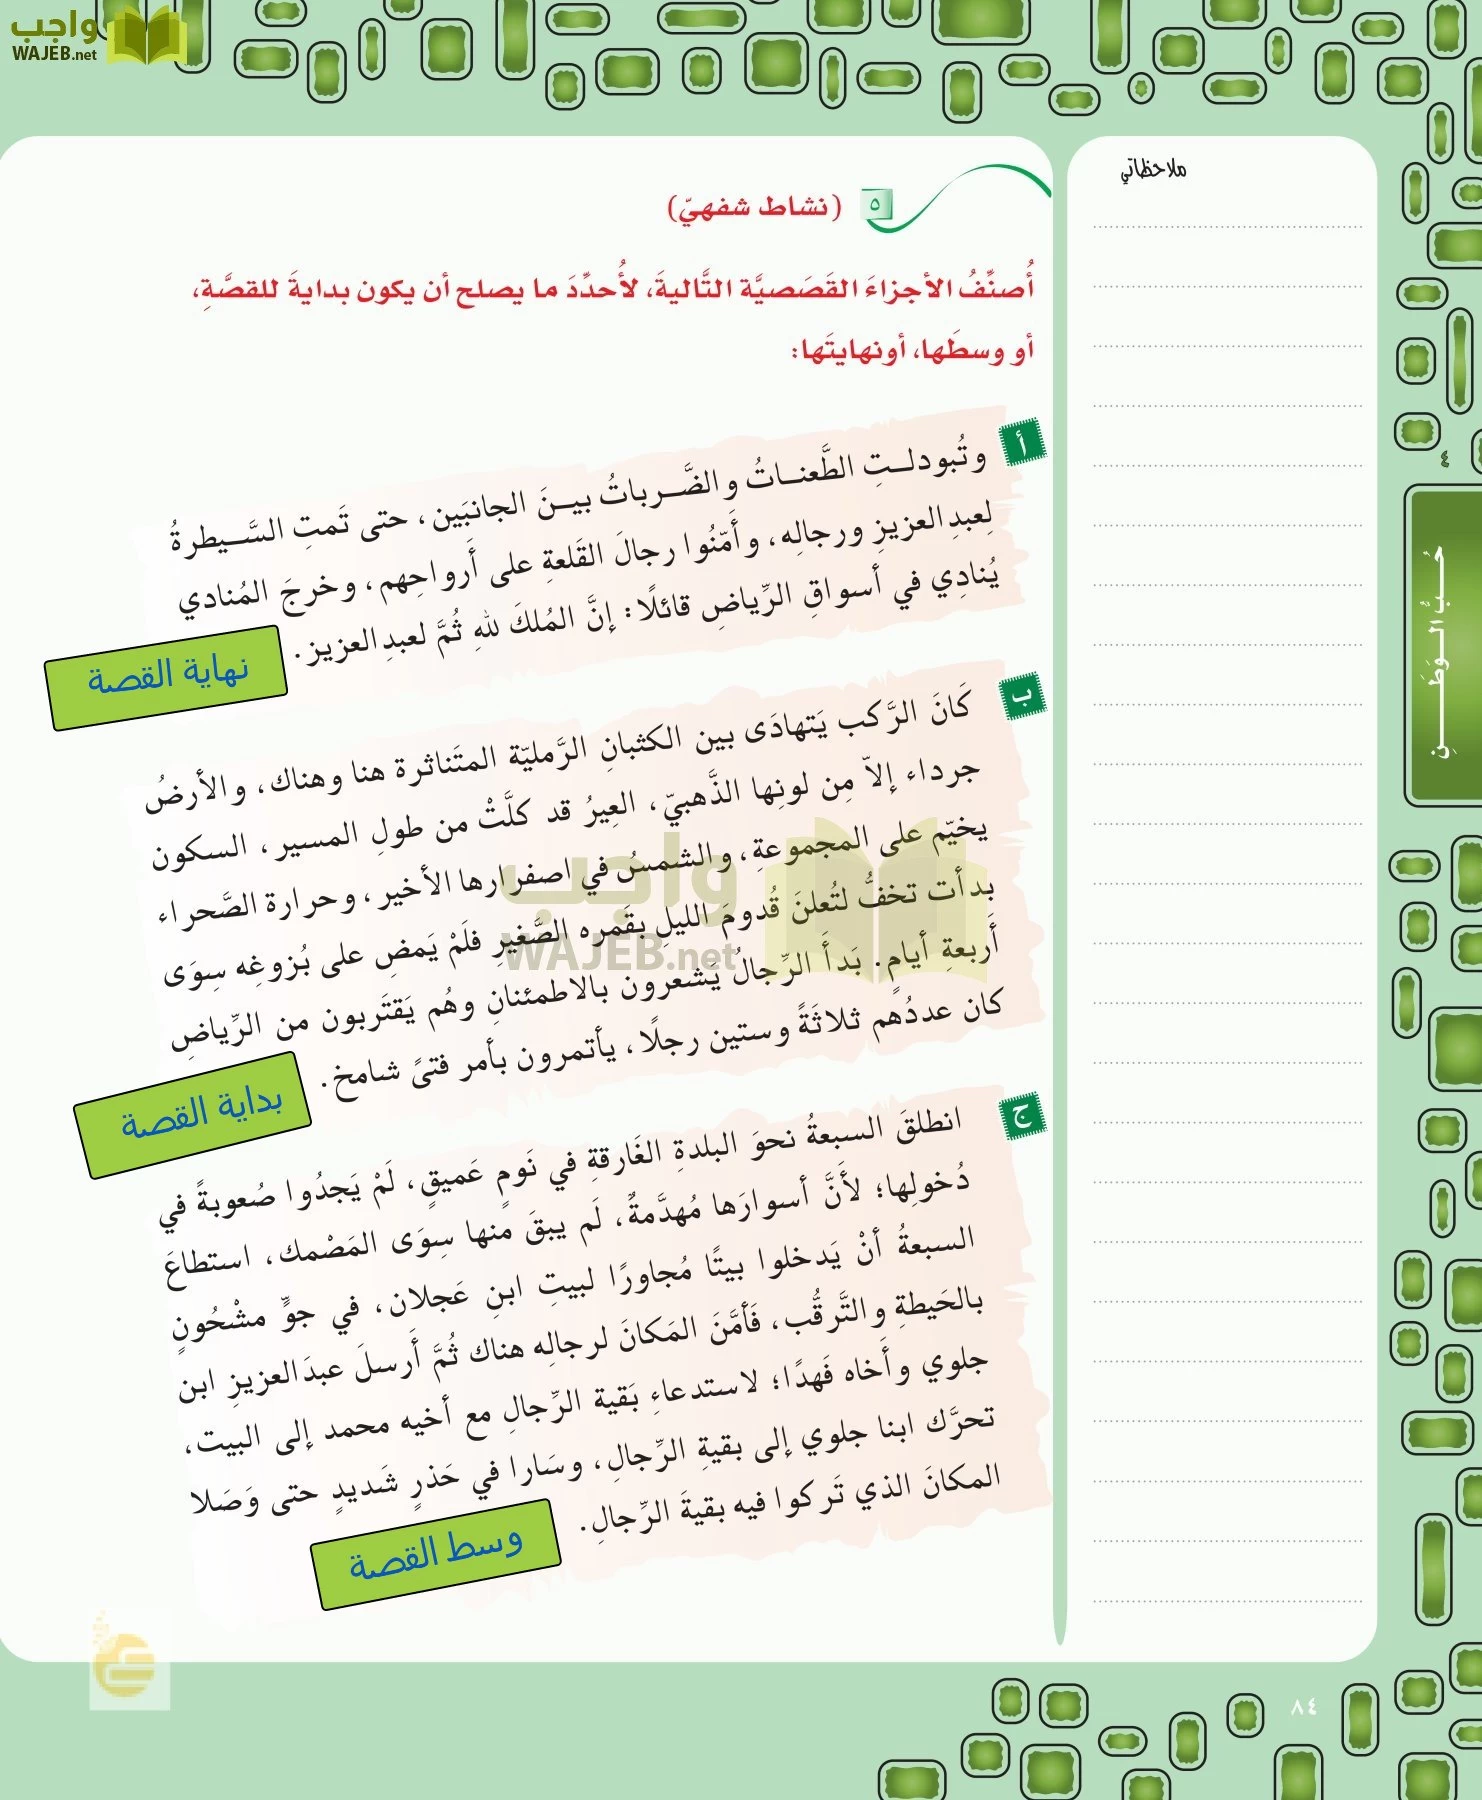 واجب
WAJEB.net
ملاحظاتي
٥ (نشاط شفهيّ)
أُصنِّفُ الأجزاءَ القَصَصيَّة التَّاليةَ، لأُحدِّدَ ما يصلح أن يكون بدايةَ للقصَّةِ،
أو وسطَها، أونهايتَها:
أ
وتُبودلـتِ الطَّعنـاتُ والضَّـرباتُ بيـنَ الجانبَين، حتى تَمتِ السَّـيطرةُ
لِعبدِالعزيزِ ورجالِه، وأَمّنُوا رجالَ القَلعةِ على أَرواحِهم، وخرجَ المُنادي
يُنادِي في أسواقِ الرِّياضِ قائلًا: إنَّ المُلكَ للهِ ثُمَّ لعبدِالعزيز.
نهاية القصة
ب
كَانَ الرَّكب يَتهادَى بين الكثبانِ الرَّمليّة المتَناثرة هنا وهناك، والأرضُ
جرداء إلاّ مِن لونِها الذَّهبيّ، العِيرُ قد كلَّتْ من طولِ المسير، السكون
يخيّم على المجموعةِ، والشمسُ في اصفرارها الأخير، وحرارة الصَّحراء
بدأت تخفُّ لتُعلنَ قُدومَ الليلِ بقَمره الصَّغيرِ فلَمْ يَمضِ على بُزوغِه سِوَى
أَربعةِ أيامٍ. بَدأَ الرِّجالُ يَشعرون بالاطمئنانِ وهُم يَقتَربون من الرِّياضِ
كان عددُهم ثلاثَةً وستين رجلًا، يأتمرون بأمر فتىً شامخ.
بداية القصة
واجب
WAJEB.net
ج
انطلقَ السبعةُ نحوَ البلدةِ الغَارقةِ في نَومٍ عَميقٍ، لَمْ يَجدُوا صُعوبةً في
دُخولِها؛ لأَنَّ أسوارَها مُهدَّمةٌ، لَم يبقَ منها سِوَى المَصْمك، استطاعَ
السبعةُ أنْ يَدخلوا بيتًا مُجاورًا لبيتِ ابنِ عَجلان، في جوٍّ مشْحُونٍ
بالحَيطةِ والتَّرقُّب، فَأمَّنَ المَكانَ لرجالِه هناك ثُمَّ أَرسلَ عبدَالعزيزِ ابن
جلوي وأَخاه فَهدًا؛ لاستدعاءِ بَقية الرِّجالِ مع أخيه محمد إلى البيت،
تحرَّك ابنا جلوي إلى بقيةِ الرِّجالِ، وسَارا في حَذرٍ شَديدٍ حتى وَصَلا
المكانَ الذي تَركوا فيه بقيةَ الرِّجالِ.
وسط القصة
٤
حُـبُّ الـوَطَـنِ
٨٤